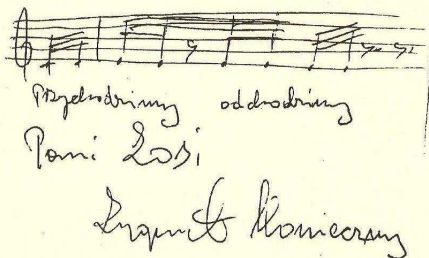 Przychodzimy odchodzimy
Pani Zosi
Zygmunt Konieczny